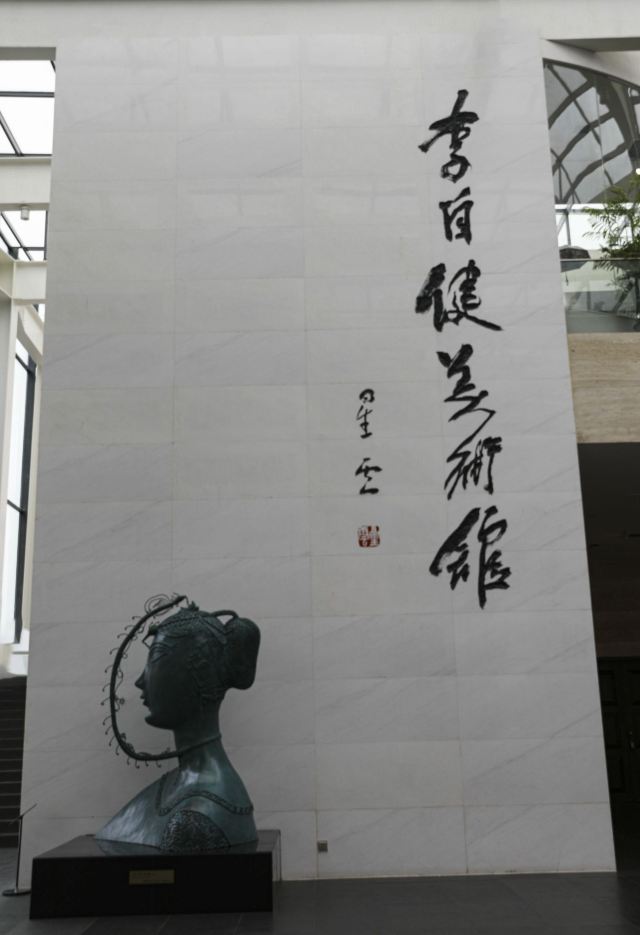 李自健美術館
星雲